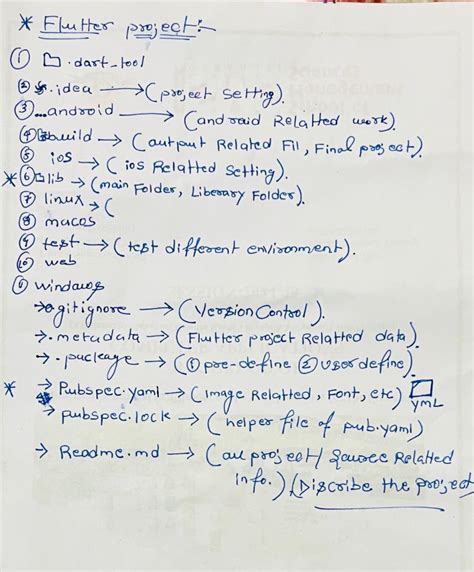 * Flutter project:-
① .dart_tool
② .idea → (project setting).
③ ...android → (android Relatted work).
④ build → (output Related Fil, Final project).
⑤ ios → (ios Relatted setting).
* ⑥ lib → (main Folder, Liberary Folder).
⑦ linux → (
⑧ macos
⑨ test → (test different environment).
⑩ web
⑪ windows
→ gitignore → (Version Control).
→ .metadata → (Flutter project Relatted data).
→ .package → (① pre-define ② user define).
* → Pubspec.yaml → (image Relatted, Font, etc) YML
→ pubspec.lock → (helper file of pub.yaml)
→ Readme.md → (all project/ Source Related
info.) (Discribe the project